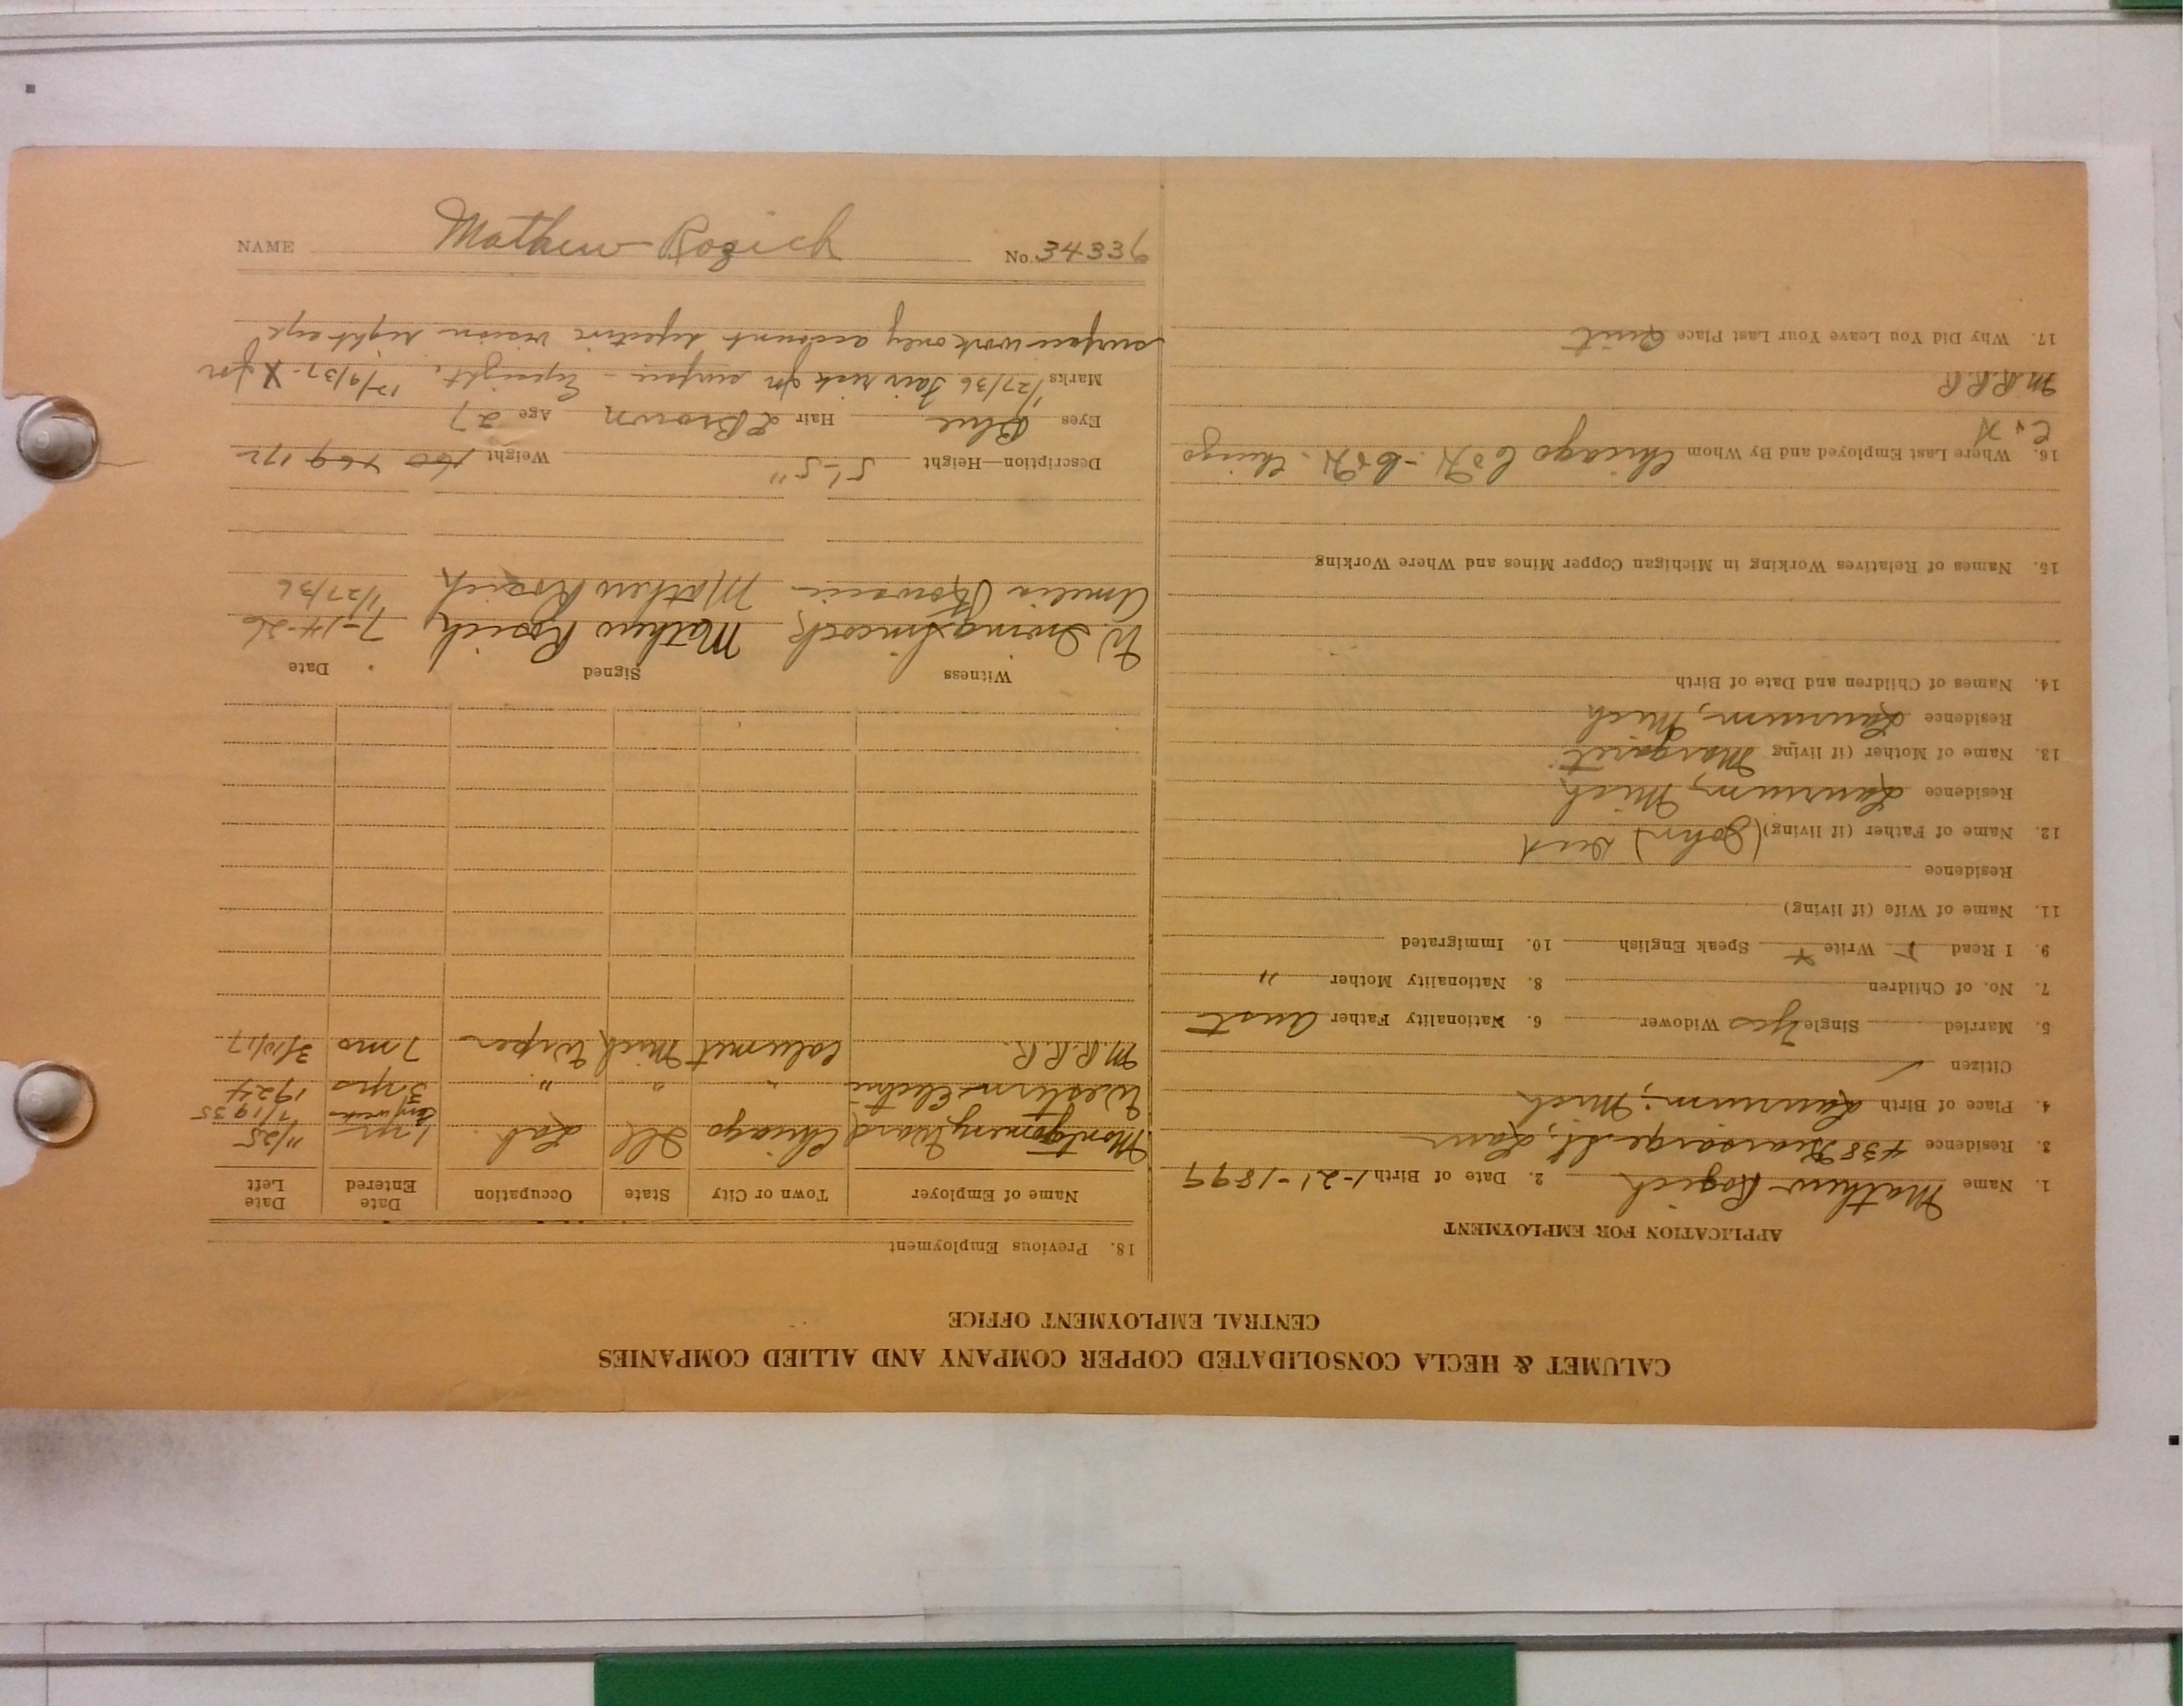 CALUMET & HECLA CONSOLIDATED COPPER COMPANY AND ALLIED COMPANIES
CENTRAL EMPLOYMENT OFFICE
APPLICATION FOR EMPLOYMENT
1. Name Mathew Rozich 2. Date of Birth 1-21-1899
3. Residence 438 Kearsarge St, Laur
4. Place of Birth Laurium, Mich
Citizen ✓
5. Married Single Yes Widower 6. Nationality Father Aust
7. No. of Children 8. Nationality Mother "
9. I Read Write Speak English 10. Immigrated
11. Name of Wife (if living)
Residence
12. Name of Father (if living) (John)
Residence Laurium, Mich
13. Name of Mother (if living) Margaret
Residence Laurium, Mich
14. Names of Children and Date of Birth
15. Names of Relatives Working in Michigan Copper Mines and Where Working
16. Where Last Employed and By Whom Chicago C&H - C&H - Chicago
C & H
M.R.R.R
17. Why Did You Leave Your Last Place Quit
18. Previous Employment
Name of Employer Town or City State Occupation Date Entered Date Left
Montgomery Ward Chicago Ill Lab. 1 yr 11/25
7/1935
Western Electric " " " 3 yrs 1924
M.R.R.R. Calumet Mich Wiper 7 mo 3/10/17
Witness Signed Date
W. Irving Mathew Rozich 7-14-26
Amelia Mathew Rozich 1/27/36
Description—Height 5'-5" Weight 160 169 172
Eyes Blue Hair L Brown Age 27
Marks 1/27/36 Fair risk for surface - Eyesight. 12/9/37 - X for
surface work only account defective vision right eye
NAME Mathew Rozich No. 34336